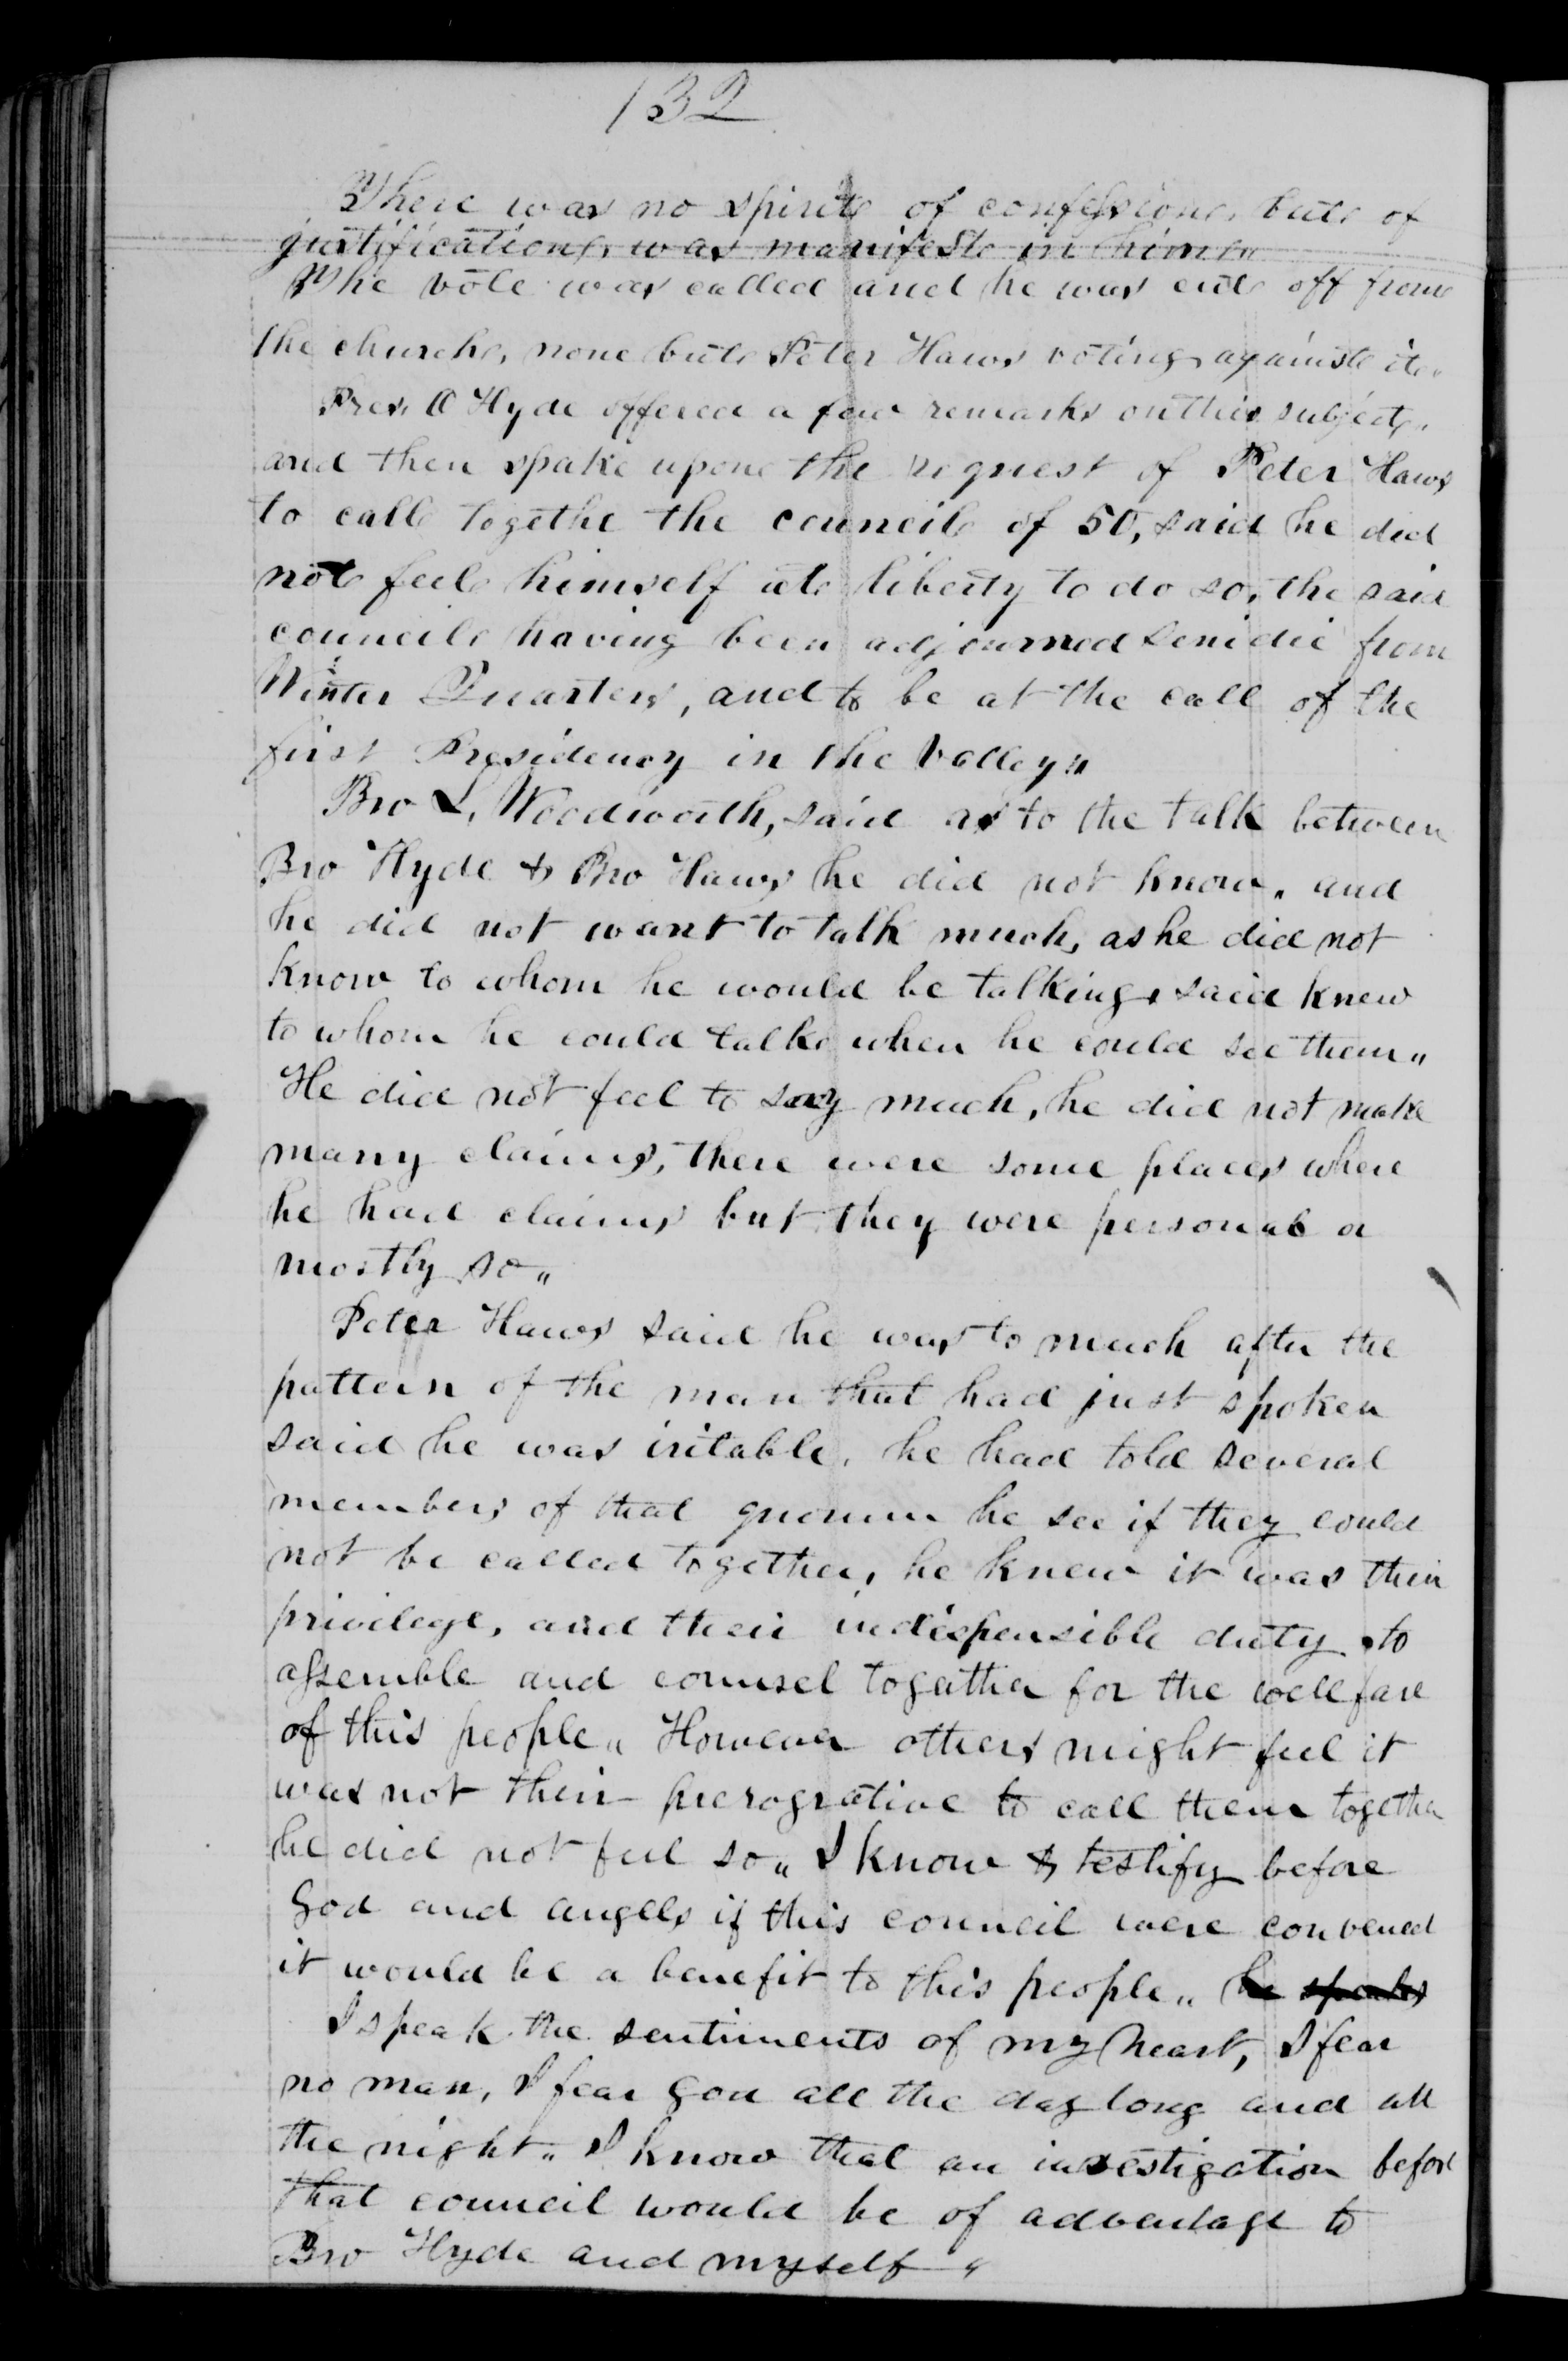 132
There was no spirit of confession, but of
justification, was manifest in him "
The vote was called and he was cut off from
the church, none but Peter Haws voting against it "
Pres. O Hyde offered a few remarks on this subject,
and then spake upon the request of Peter Haws
to call togethe the council of 50, said he did
not feel himself at liberty to do so, the said
council having been adjourned Senidie from
Winter Quarters, and to be at the call of the
first Presidency in the Valley "
Bro L, Woodworth, said as to the talk between
Bro Hyde & Bro Haws he did not know, and
he did not want to talk much, as he did not
know to whom he would be talking, said knew
to whom he could talk, when he could see them "
He did not feel to say much, he did not make
many claims, there were some places where
he had claims but they were personal or
mostly so "
Peter Haws said he was to much after the
pattern of the man that had just spoken
said he was iritable, he had told several
members of that quorum he see if they could
not be called together, he knew it was their
privilege, and their indispensible duty to
assemble and counsel togather for the wellfare
of this people " However others might feel it
was not their prerogrative to call them together
he did not feel so " I know & testify before
God and angels if this council were convened
it would be a benefit to this people " he speaks
I speak the sentiments of my heart, I fear
no man, I fear God all the day long and all
the night " I know that an investigation before
that council would be of advantage to
Bro Hyde and myself "